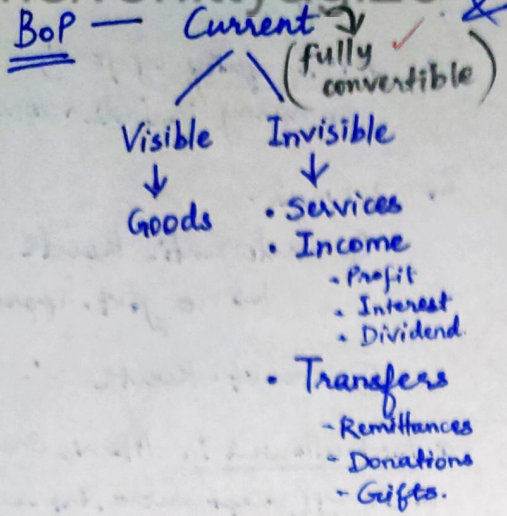 BoP — Current
(fully
convertible)
Visible Invisible
↓ ↓
Goods • Services
• Income
• Profit
• Interest
• Dividend
• Transfers
- Remittances
- Donations
- Gifts.